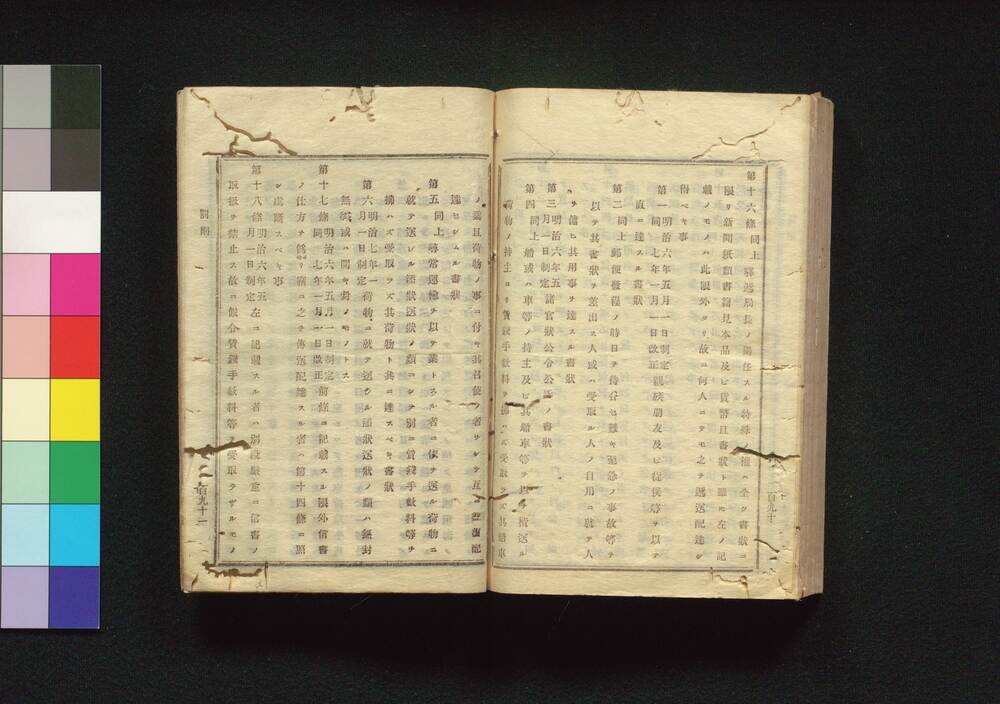 第十六條同上 驛遞局長ノ專任スル特殊ノ權ハ全ク書狀ニ
限リ新聞紙類書籍見本品及ビ貨幣且書狀ト雖モ左ノ記
載ノモノハ此限外タリ故ニ何人ニテモ之ヲ遞送配達シ
得ベキ事
第一明治六年五月一日制定同七年一月一日改正親族朋友及ビ從僕等ヲ以テ
直ニ達スル書狀
第二同上郵便發程ノ時日ヲ待ツ能ハザル至急ノ事故等ヲ
以テ其書狀ヲ差出ス人或ハ受取ル人ノ自用ニ就テ人
ヲ雇ヒ其用事ヲ達スル書狀
第三明治六年五月一日制定諸官狀公令公證ノ書狀
第四同上船或ハ車等ノ持主及ビ其船車等ヲ以テ積送ル
荷物ノ持主ヨリ賃錢手數料ヲ拂ハズ受取ラズ其船車
百九十
ノ達且荷物ノ事ニ付キ其召使ノ者ヲシテ互ニ往復配
達セシムル書狀
第五同上尋常運輸ヲ以テ業トスル者ニ依テ送ル荷物ニ
就テ送レル添狀送狀ノ類ニシテ別ニ賃錢手數料等ヲ
拂ハズ受取ラズ其荷物ト共ニ達スベキ書狀
第六明治七年一月一日制定荷物ニ就テ送レル添狀送狀ノ類ハ總封
無或ハ開キ封ノモノトス
第十七條明治六年五月一日制定同七年一月一日改正前條ニ記載スル限外信書
ノ仕方ヲ僞リ竊ニ之ヲ傳送配達スル者ハ第十四條ニ照
シ處斷スベキ事
第十八條明治六年五月一日制定左ニ記載スル者ハ別段嚴重ニ信書ノ
取扱ヲ禁止ス故ニ假令賃錢手數料等ヲ受取ラザルモノ
罰則
百九十一